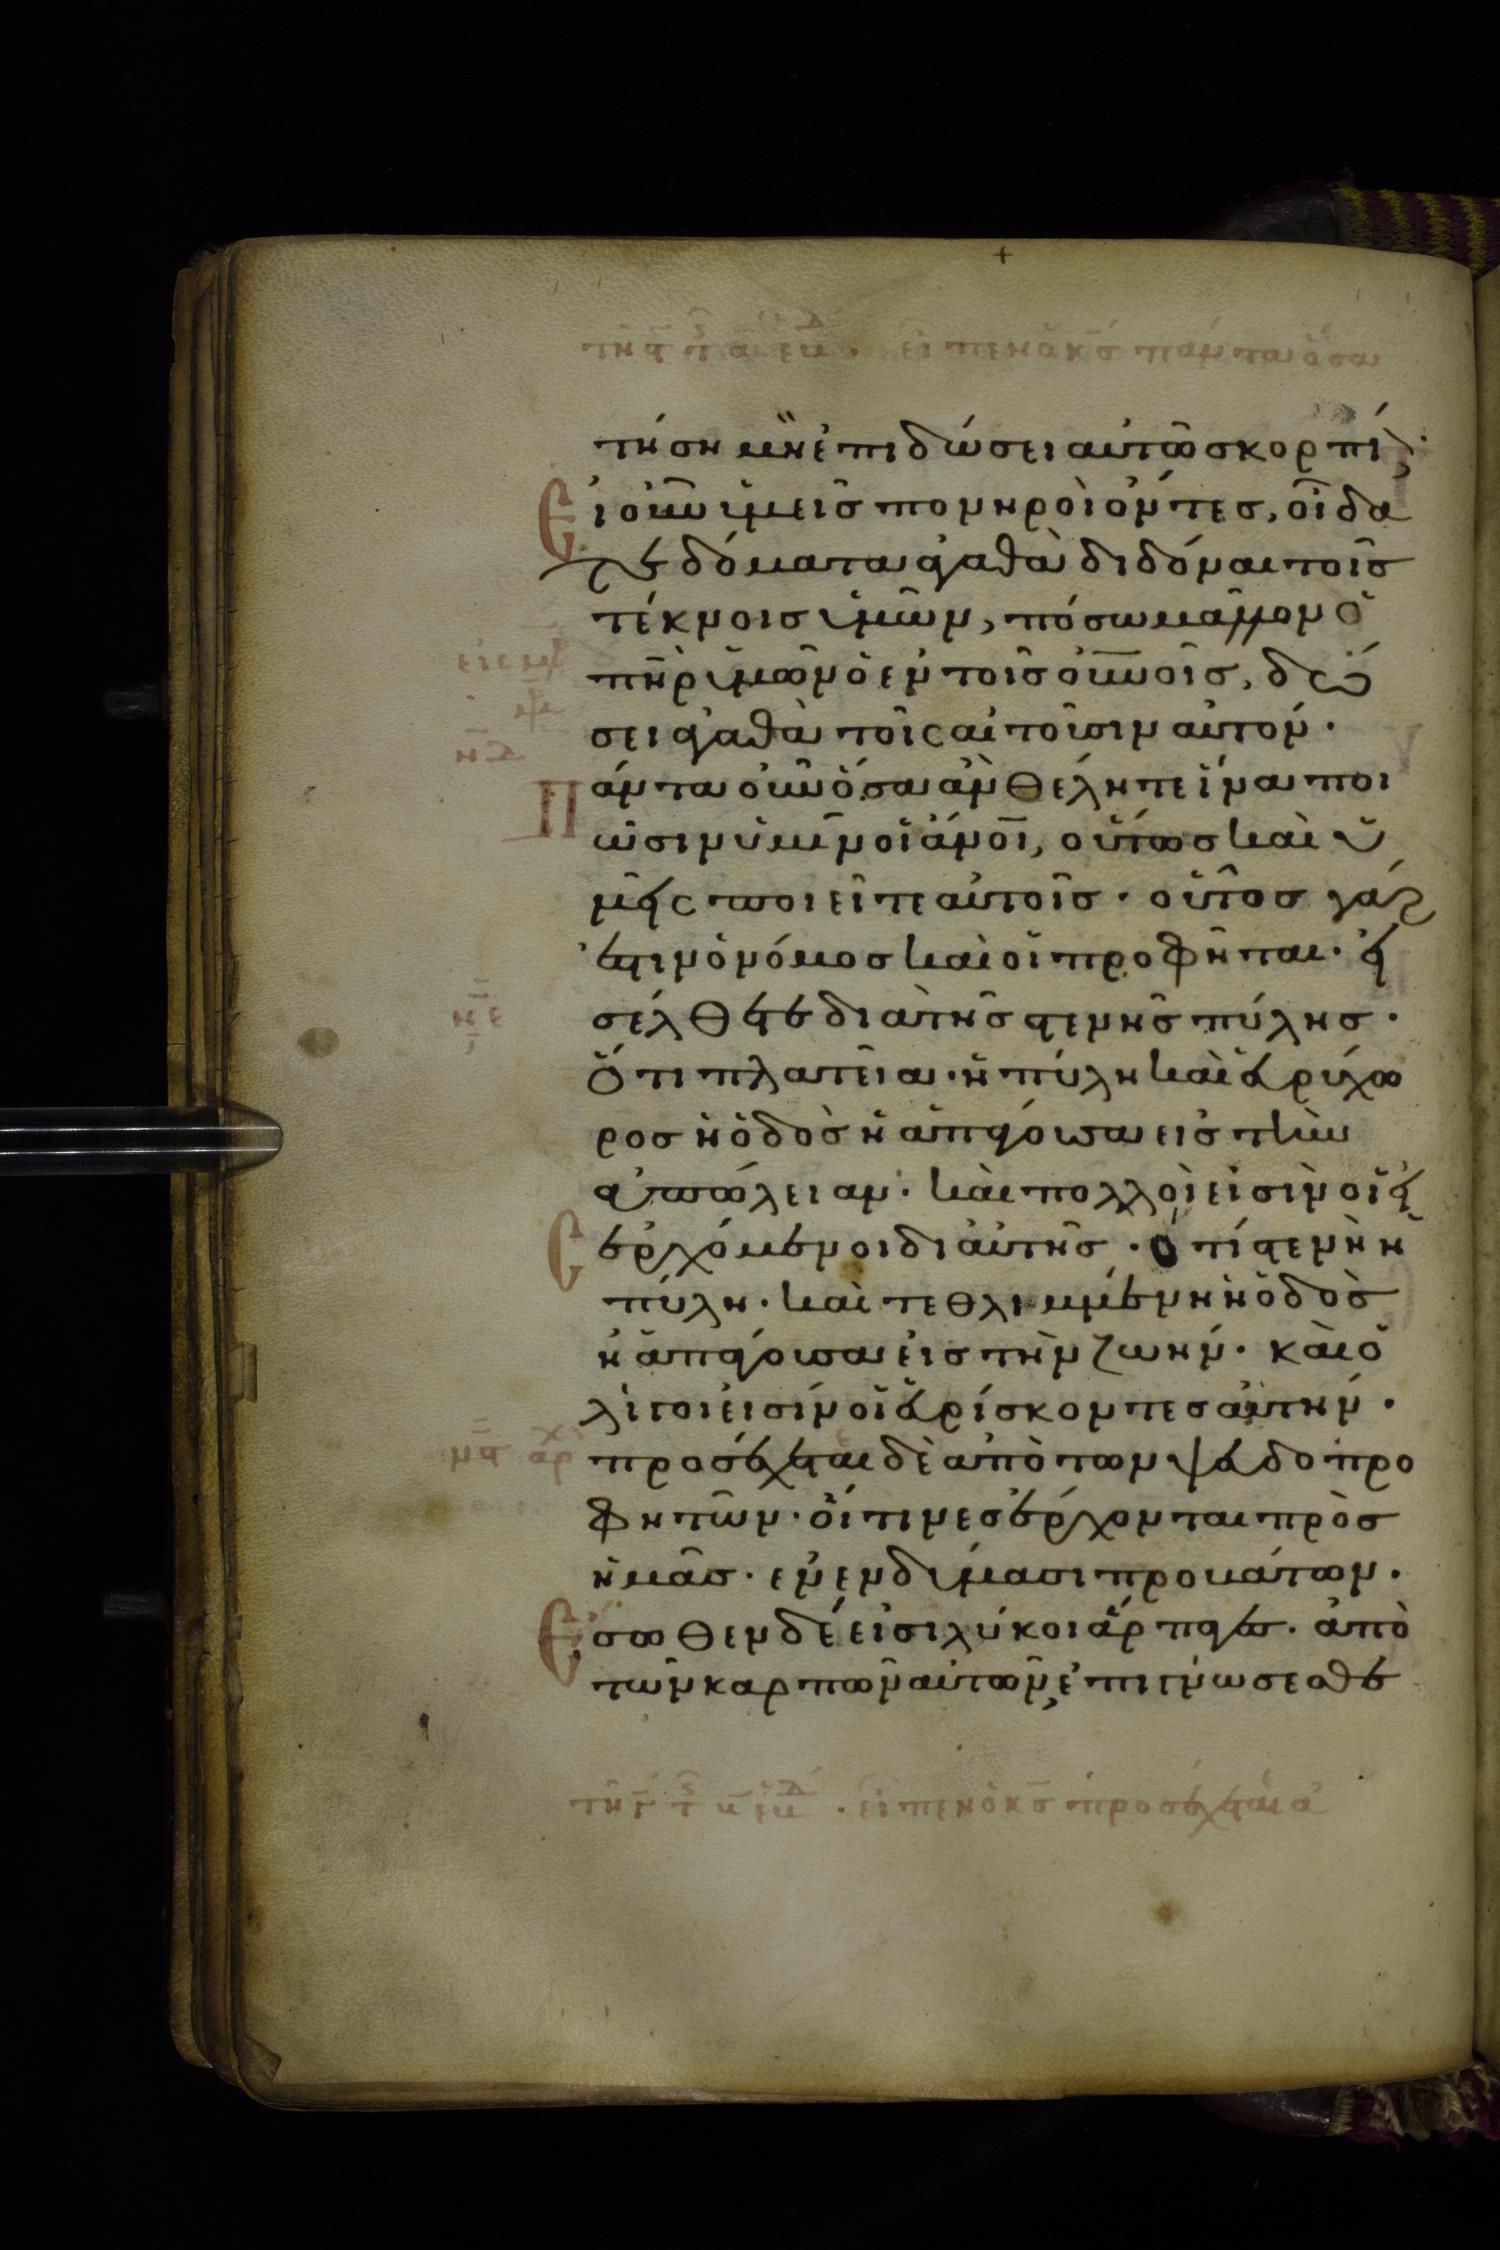 εἶπεν ὁ κς πάντα ὅσα
τήση μὴ ἐπιδώσει αὐτῶ σκορπί
Εἰ οὖν ὑμεῖς πονηροὶ ὄντες, οἶδα
τε δόματα ἀγαθὰ διδόναι τοῖς
τέκνοις ὑμῶν, πόσω μᾶλλον ὁ
πηρ ὑμῶν ὁ ἐν τοῖς οὐνοις, δώ
σει ἀγαθὰ τοῖς αἰτοῦσιν αὐτόν.
Πάντα οὖν ὅσα ἀν θέλητε ἵνα ποι
ῶσιν ὑμῖν οἱ ἄνοι, οὕτως καὶ ὑ
μεῖς ποιεῖτε αὐτοῖς. οὗτος γάρ
ἐστιν ὁ νόμος καὶ οἱ προφῆται. εἰ
σέλθετε διὰ τῆς στενῆς πύλης.
Ὅτι πλατεῖα. ἡ πύλη καὶ εὐρύχω
ρος ἡ ὁδὸς ἡ ἀπάγουσα εἰς τὴν
ἀπώλειαν. καὶ πολλοὶ εἰσὶν οἱ εἰ
σερχόμενοι δι αὐτῆς. ὅτι στενὴ ἡ
πύλη. καὶ τεθλιμμένη ἡ ὁδὸς
ἡ ἀπάγουσα εἰς τὴν ζωήν. καὶ ὀ
λίγοι εἰσίν οἱ εὑρίσκοντες αὐτήν.
μα αρχ προσέχεται δὲ ἀπὸ των ψευδοπρο
φητῶν. οἵτινες ἔρχονται πρὸς
ἡμᾶς. ἐν ἐνδύμασι προβάτων.
Ἔσωθεν δέ εἰσι λύκοι ἅρπαγες. ἀπὸ
τῶν καρπῶν αὐτῶν ἐπιγνώσεσθε
εἶπεν ὁ κς προσέχεται ἀ